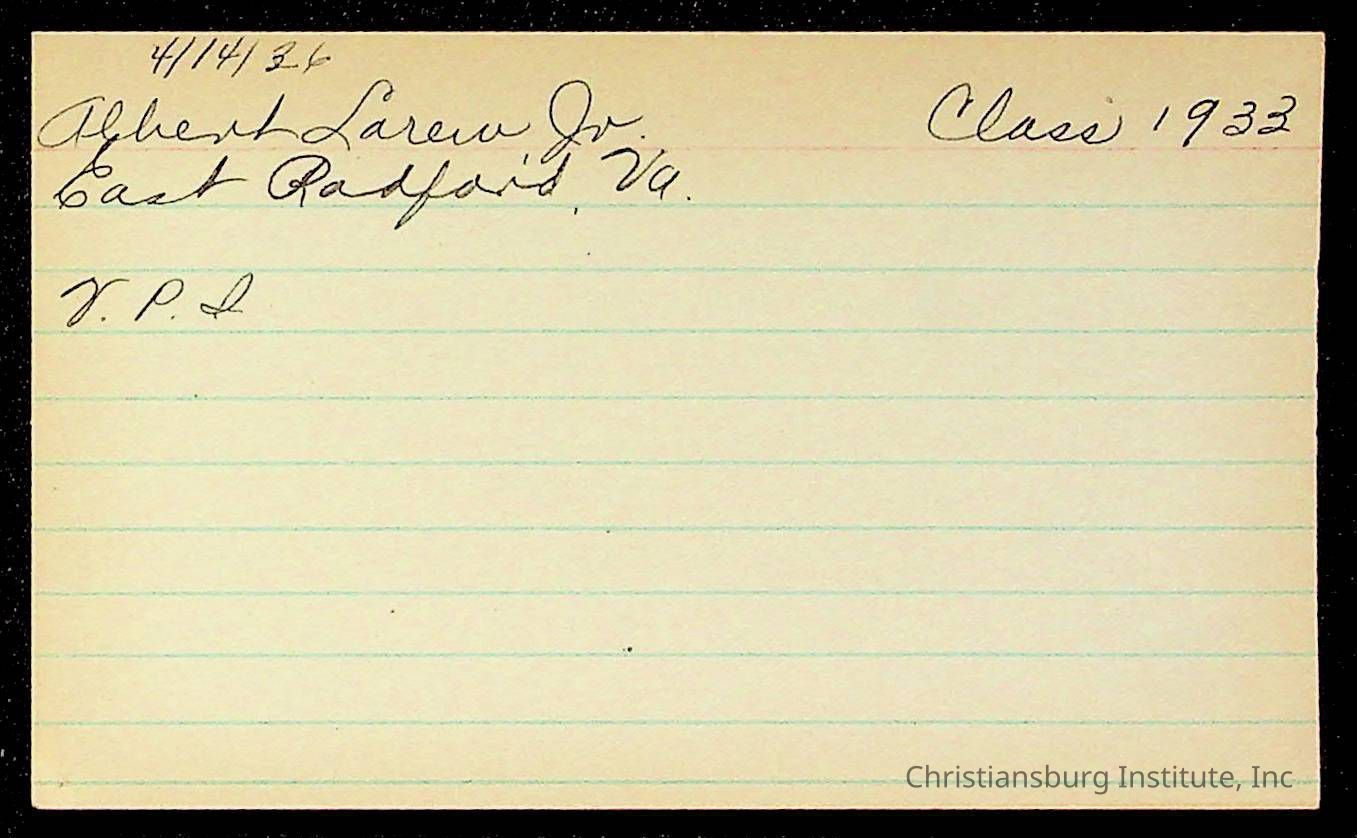 4/14/36
Albert Larew Jr. Class 1933
East Radford, Va.
V. P. I
Christiansburg Institute, Inc